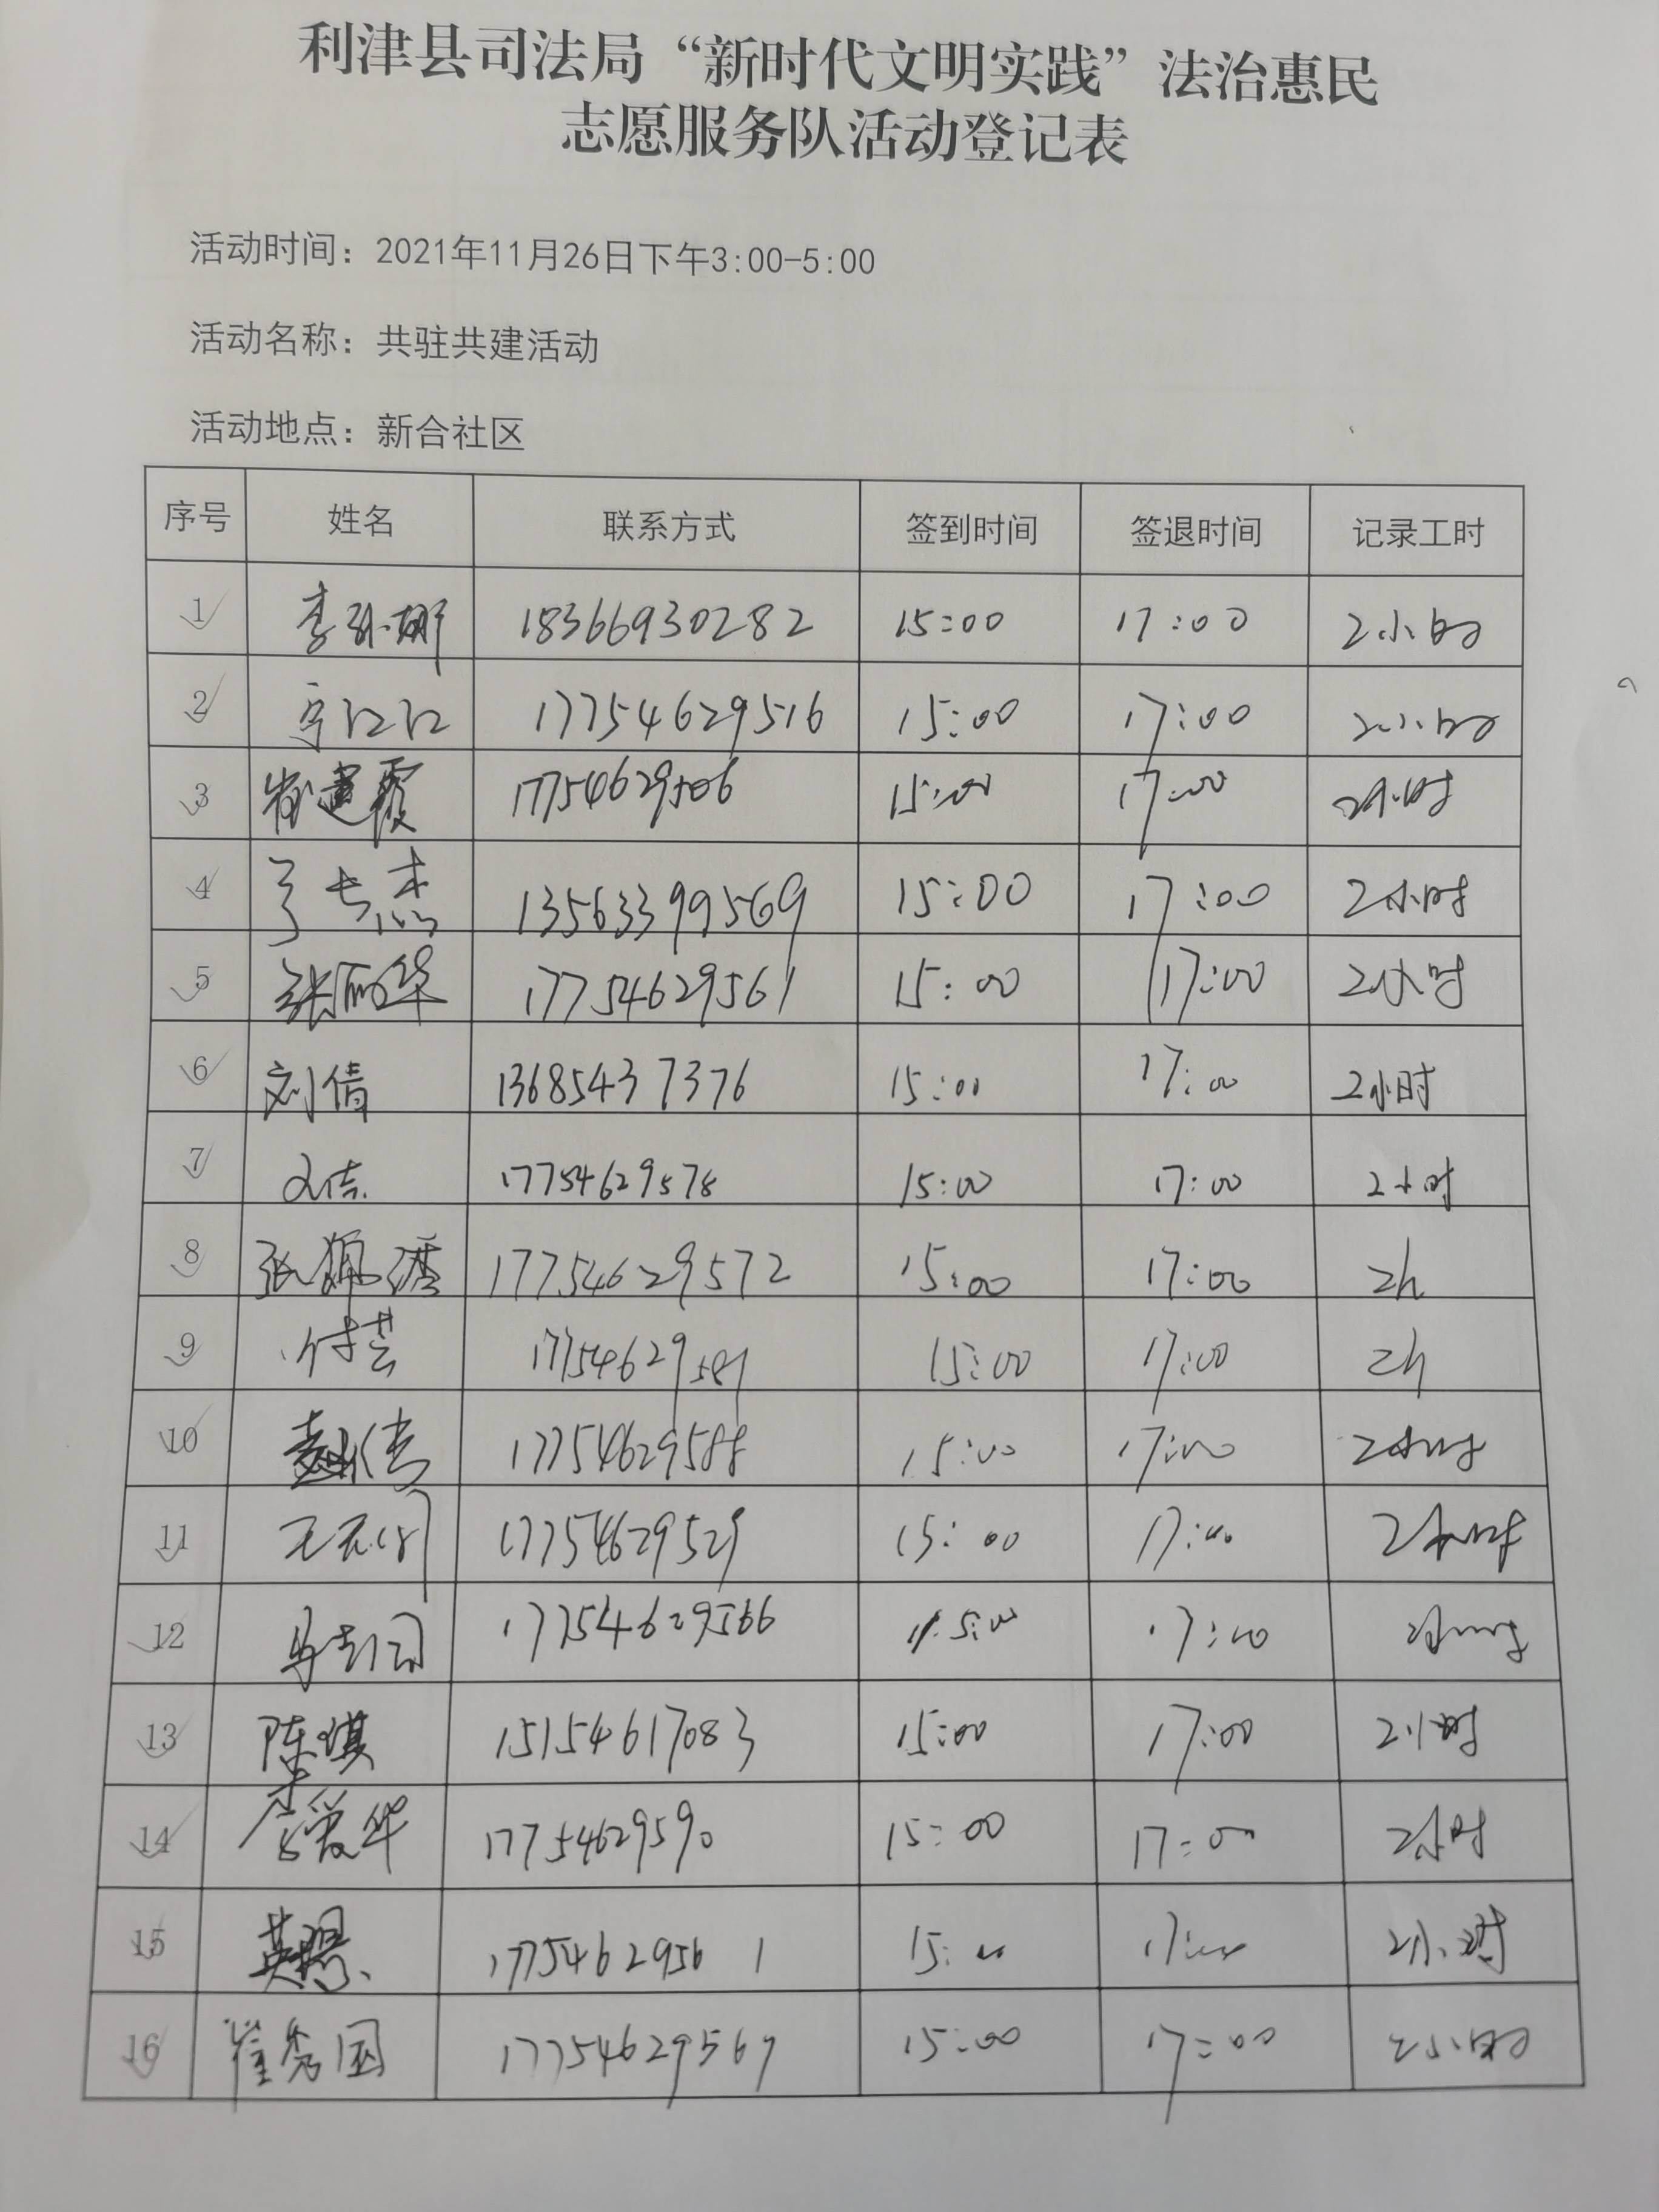 利津县司法局“新时代文明实践”法治惠民
志愿服务队活动登记表
活动时间：2021年11月26日下午3:00-5:00
活动名称：共驻共建活动
活动地点：新合社区
序号 姓名 联系方式 签到时间 签退时间 记录工时
1 18366930282 15:00 17:00 2小时
2 17754629516 15:00 17:00 2小时
3 崔建霞 17754629506 15:00 17:00 2小时
4 13563399569 15:00 17:00 2小时
5 张丽华 17754629561 15:00 17:00 2小时
6 刘倩 13685437376 15:00 17:00 2小时
7 17754629578 15:00 17:00 2小时
8 17754629572 15:00 17:00 2h
9 付芸 15:00 17:00 2h
10 17754629588 15:00 17:00 2小时
11 17754629529 15:00 17:00 2小时
12 17754629566 15:00 17:00 2小时
13 陈琪 15154617083 15:00 17:00 2小时
14 李爱华 17754629590 15:00 17:00 2小时
15 17754629561 15:00 17:00 2小时
16 崔秀国 17754629567 15:00 17:00 2小时